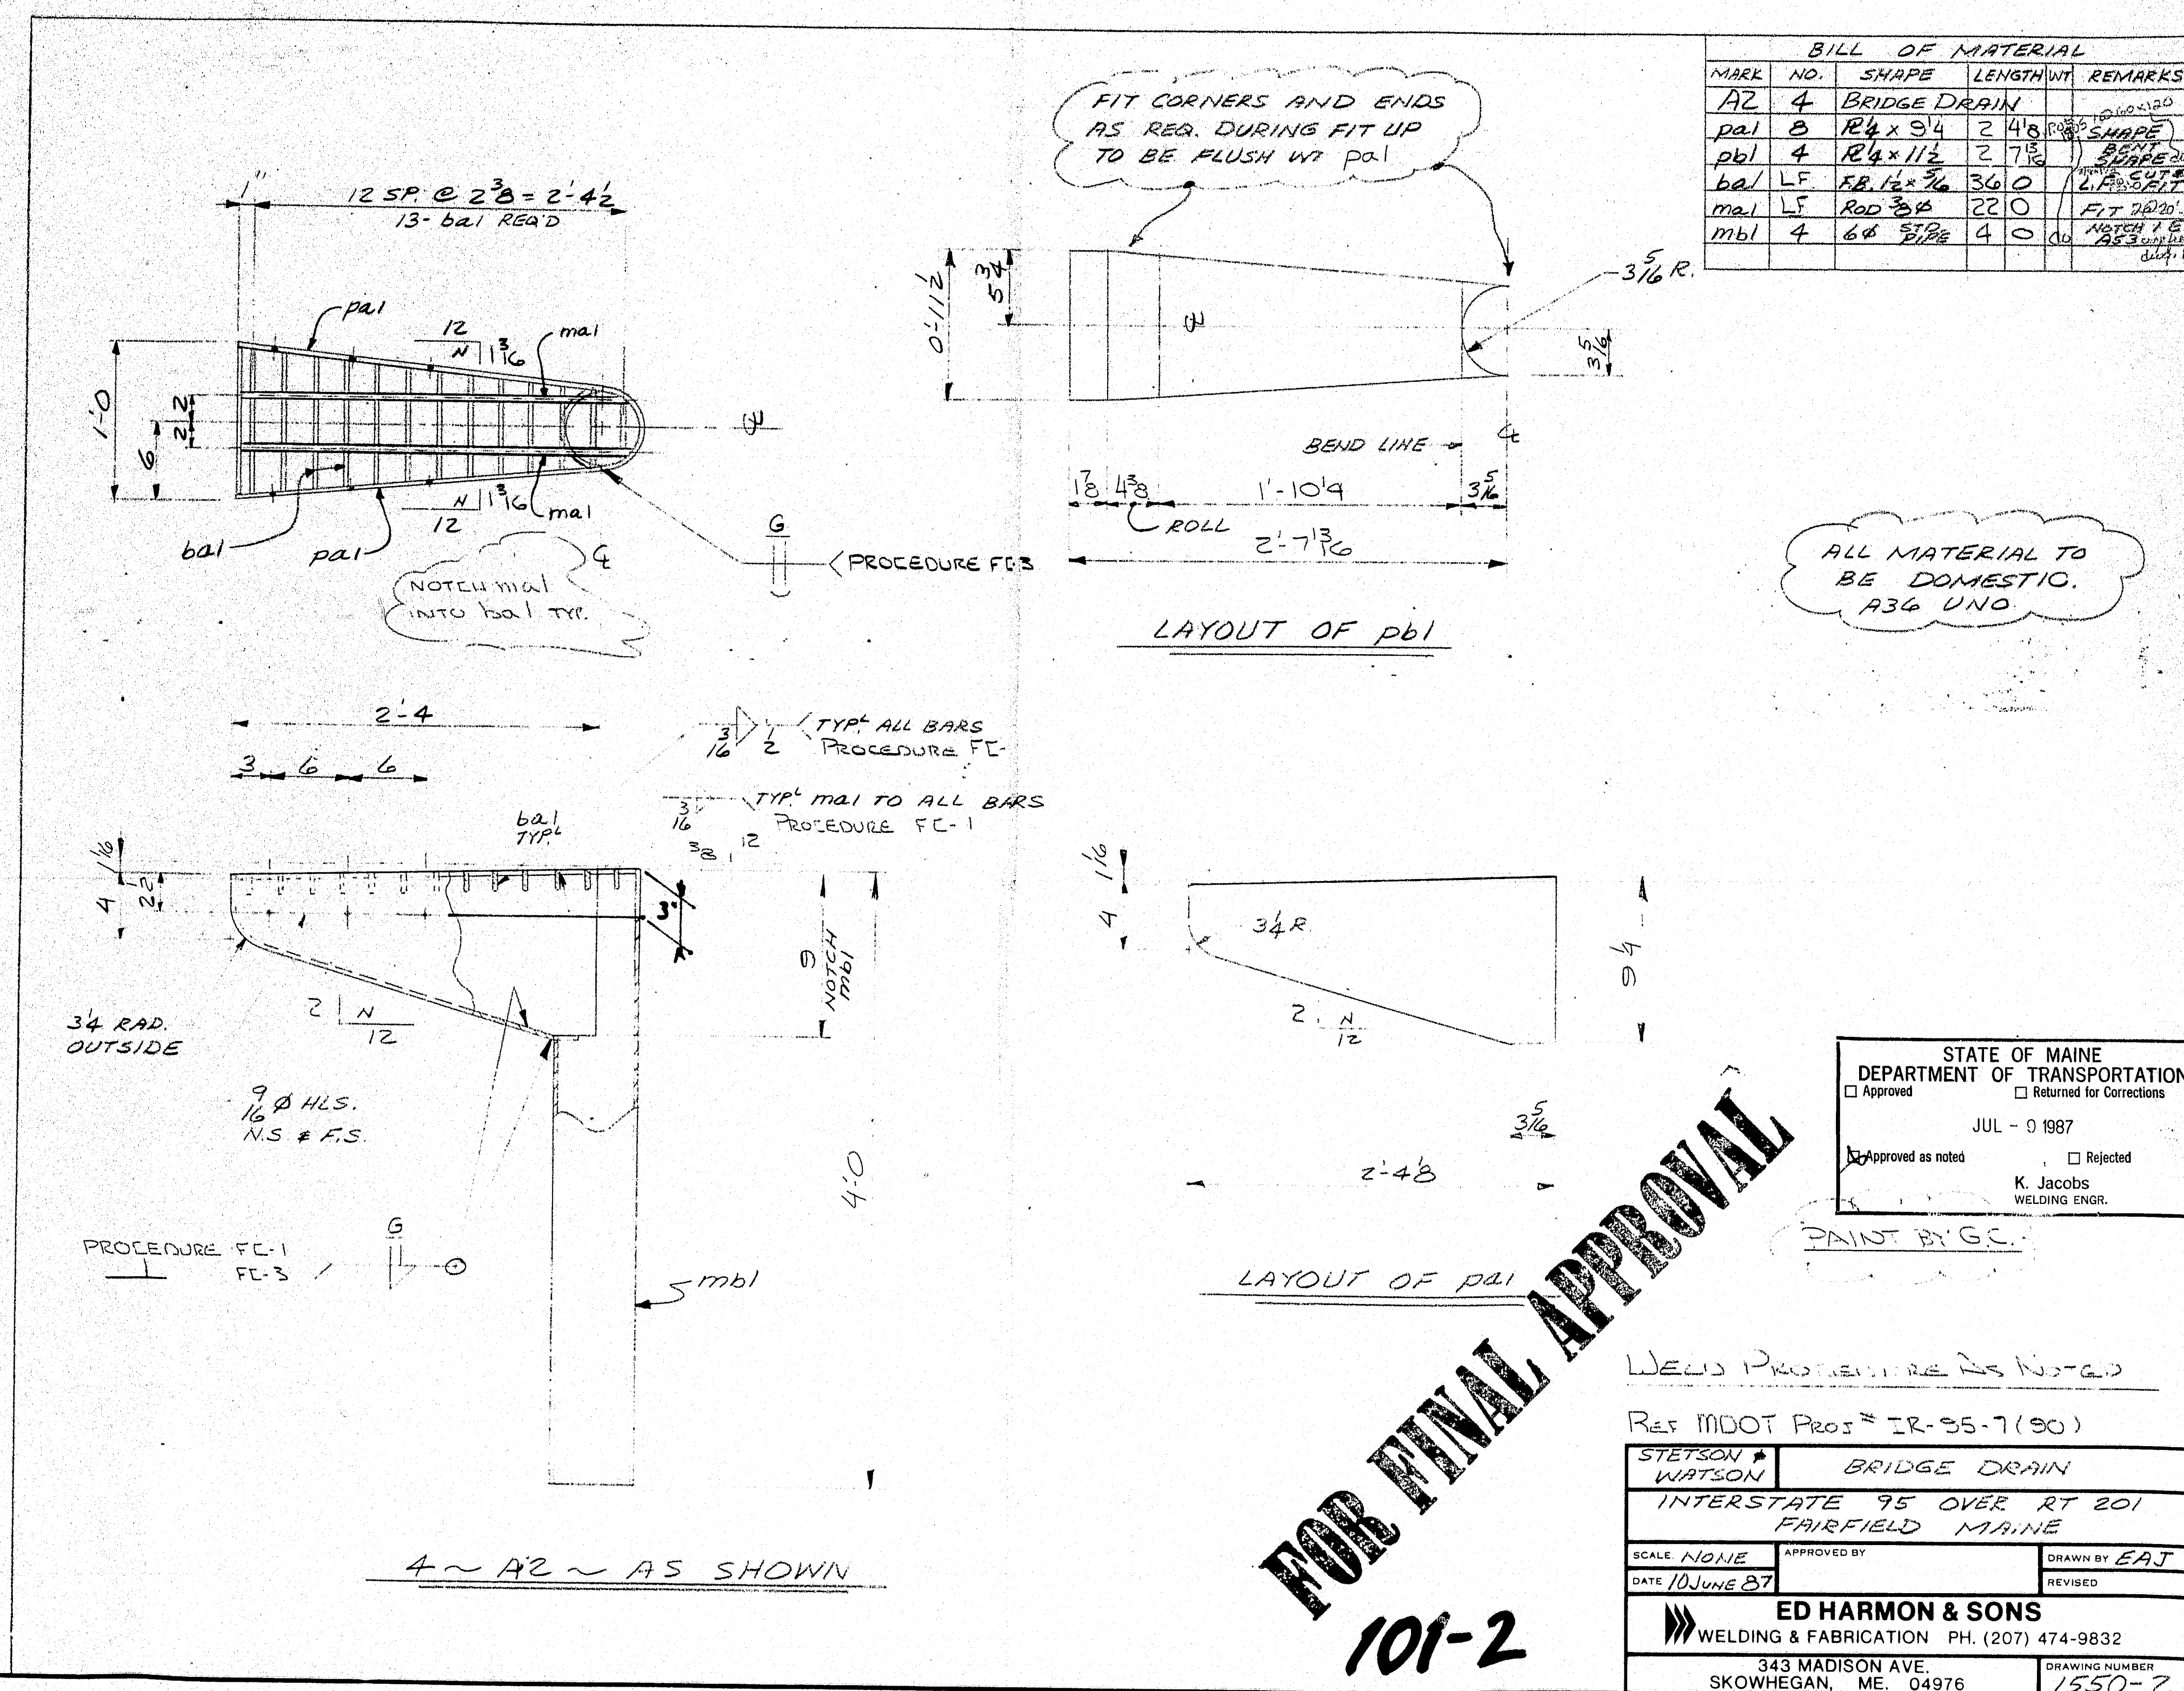 BILL OF MATERIAL
MARK NO. SHAPE LENGTH WT REMARKS
A2 4 BRIDGE DRAIN
pa1 8 PL 1/4 x 9 1/4 2 4 1/8 SHAPE
pb1 4 PL 1/4 x 11 1/2 2 7 13/16 BENT SHAPE
ba1 LF F.B. 1 1/2 x 5/16 36 0 L.F. CUT & FIT
ma1 LF ROD 3/8 ø 22 0 FIT 2@20'
mb1 4 6ø STD. PIPE 4 0 do NOTCH 1 E
A53
FIT CORNERS AND ENDS
AS REQ. DURING FIT UP
TO BE FLUSH W/ pa1
1" 12 SP. @ 2 3/8 = 2'-4 1/2
13- ba1 REQ'D
pa1
12
N 1 3/16
ma1
1'-0
2 2
6
℄
N 1 3/16
12
ma1
ba1
pa1
NOTCH ma1
INTO ba1 TYP.
℄
G
PROCEDURE FC-3
0'-11 1/2
5 3/4
℄
3 5/16 R.
3 5/16
BEND LINE
℄
1 7/8 4 3/8 1'-10 1/4 3 5/16
ROLL
2'-7 13/16
LAYOUT OF pb1
ALL MATERIAL TO
BE DOMESTIC.
A36 UNO.
2'-4
3 6 6
3/16 1/2 TYP'L ALL BARS
PROCEDURE FC-
3/16 TYP'L ma1 TO ALL BARS
PROCEDURE FC-1
3/8 12
ba1
TYP'L
1/16
4
2 1/2
3"
9
NOTCH
mb1
4'-0
3 1/4 RAD.
OUTSIDE
2 N
12
9/16 ø HLS.
N.S & F.S.
PROCEDURE FC-1
FC-3
G
mb1
4 ~ A2 ~ AS SHOWN
1/16
4
3 1/4 R.
9 1/4
2 N
12
3 5/16
2'-4 1/8
LAYOUT OF pa1
STATE OF MAINE
DEPARTMENT OF TRANSPORTATION
Approved Returned for Corrections
JUL - 9 1987
Approved as noted Rejected
K. Jacobs
WELDING ENGR.
PAINT BY G.C.
FOR FINAL APPROVAL
101-2
WELD PROCEDURE AS NOTED
REF MDOT PROJ # IR-95-7(90)
STETSON & WATSON
BRIDGE DRAIN
INTERSTATE 95 OVER RT 201
FAIRFIELD MAINE
SCALE NONE APPROVED BY DRAWN BY EAJ
DATE 10 JUNE 87 REVISED
ED HARMON & SONS
WELDING & FABRICATION PH. (207) 474-9832
343 MADISON AVE.
SKOWHEGAN, ME. 04976
DRAWING NUMBER
1550-2